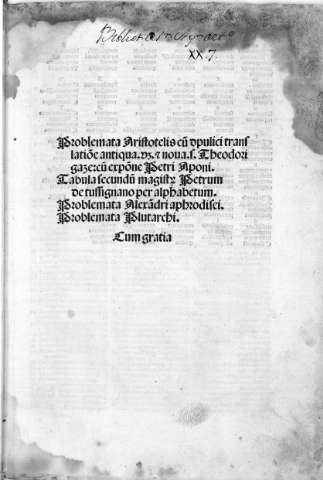 XX.7.
Problemata Aristotelis cū duplici transʃ
latiōe antiqua.vz.⁊ noua.s. Theodori
gaze:cū expōne Petri Aponi.
Tabula secundū magistrꝝ Petrum
de tussignano per alphabetum.
Problemata Alexādri aphrodisei.
Problemata Plutarchi.
Cum gratia